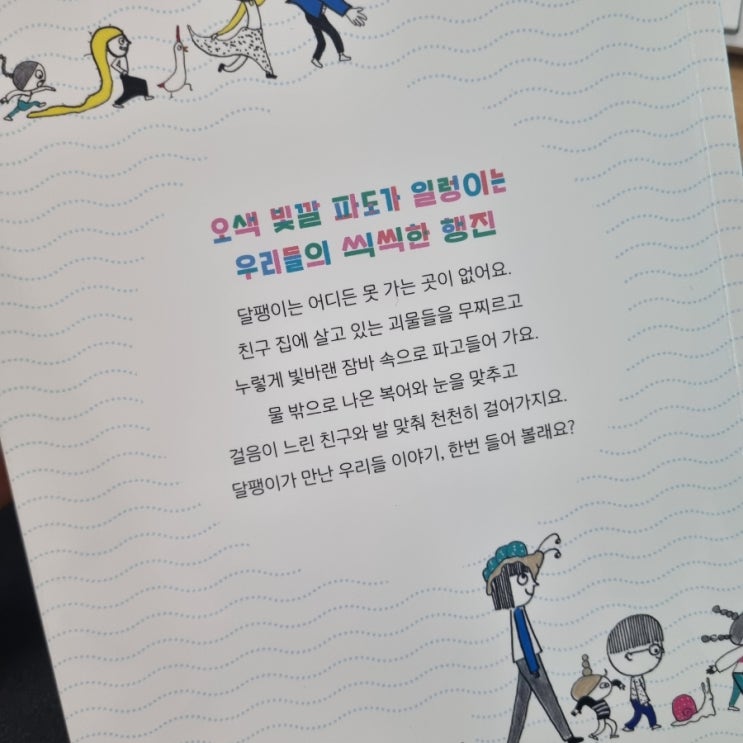 오색 빛깔 파도가 일렁이는
우리들의 씩씩한 행진
달팽이는 어디든 못 가는 곳이 없어요.
친구 집에 살고 있는 괴물들을 무찌르고
누렇게 빛바랜 잠바 속으로 파고들어 가요.
물 밖으로 나온 복어와 눈을 맞추고
걸음이 느린 친구와 발 맞춰 천천히 걸어가지요.
달팽이가 만난 우리들 이야기, 한번 들어 볼래요?